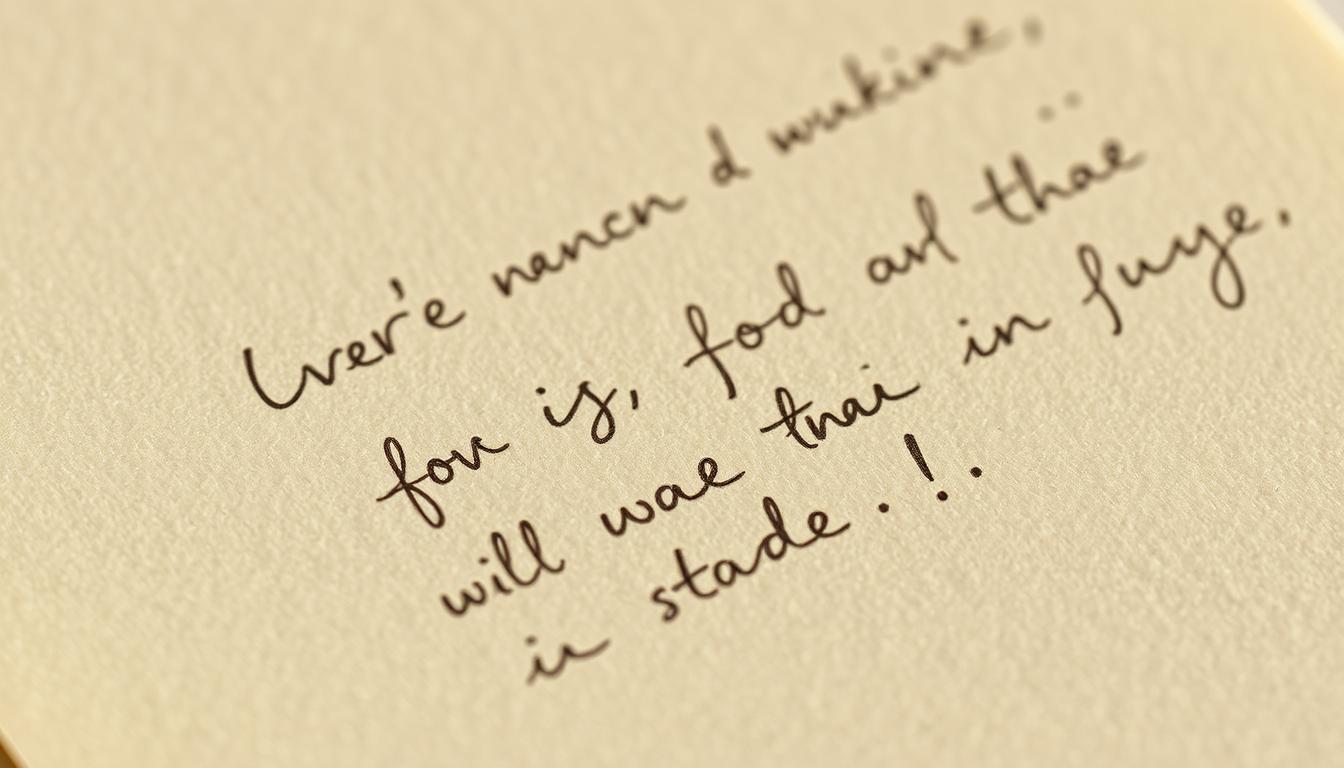 Wer'e nancn d wukine,
fou is, fod arl thae
will wae tnai in fuye.
in stade . ! .